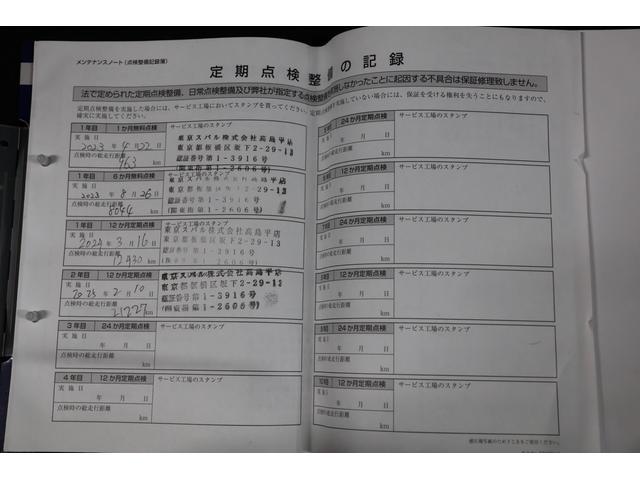 メンテナンスノート(点検整備記録簿)
定期点検整備の記録
法で定められた定期点検整備、日常点検整備及び弊社が指定する点検整備
しなかったことに起因する不具合は保証修理致しません。
定期点検整備を実施した場合には、サービス工場においてスタンプを貰ってください。
確実に実施してください。
していない場合には、保証を受ける権利を失うことにもなりますので、
1年目 1か月無料点検 サービス工場のスタンプ
実施日
2023年4月22日
点検時の総走行距離
963 km
東京スバル株式会社高島平店
東京都板橋区坂下2-29-13
認証番号第1-3916号
(関東指第1-2606号)
1年目 6か月無料点検 サービス工場のスタンプ
実施日
2023年8月26日
点検時の総走行距離
8044 km
東京スバル株式会社高島平店
東京都板橋区坂下2-29-13
認証番号第1-3916号
(関東指第1-2606号)
1年目 12か月定期点検 サービス工場のスタンプ
実施日
2024年3月16日
点検時の総走行距離
12930 km
東京スバル株式会社高島平店
東京都板橋区坂下2-29-13
認証番号第1-3916号
1-2606号)
2年目 12か月定期点検 サービス工場のスタンプ
実施日
2025年2月10日
点検時の総走行距離
21227 km
東京スバル株式会社高島平店
東京都板橋区坂下2-29-13
認証番号第1-3916号
1-2606号)
3年目 24か月定期点検 サービス工場のスタンプ
実施日
年 月 日
点検時の総走行距離
km
4年目 12か月定期点検 サービス工場のスタンプ
実施日
年 月 日
点検時の総走行距離
km
24か月定期点検 サービス工場のスタンプ
年 月 日
km
12か月定期点検 サービス工場のスタンプ
年 月 日
km
24か月定期点検 サービス工場のスタンプ
年 月 日
km
12か月定期点検 サービス工場のスタンプ
年 月 日
km
24か月定期点検 サービス工場のスタンプ
年 月 日
点検時の総走行距離
km
12か月定期点検 サービス工場のスタンプ
年 月 日
点検時の総走行距離
km